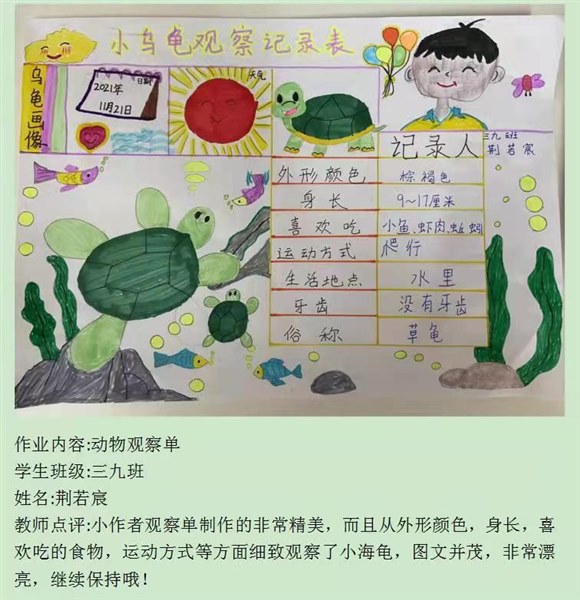 小乌龟观察记录表
乌龟画像
日期
2021年
11月21日
天气
记录人
三九班
荆若宸
外形颜色 棕褐色
身长 9~17厘米
喜欢吃 小鱼、虾肉、蚯蚓
运动方式 爬行
生活地点 水里
牙齿 没有牙齿
俗称 草龟
作业内容:动物观察单
学生班级:三九班
姓名:荆若宸
教师点评:小作者观察单制作的非常精美，而且从外形颜色，身长，喜
欢吃的食物，运动方式等方面细致观察了小海龟，图文并茂，非常漂
亮，继续保持哦！